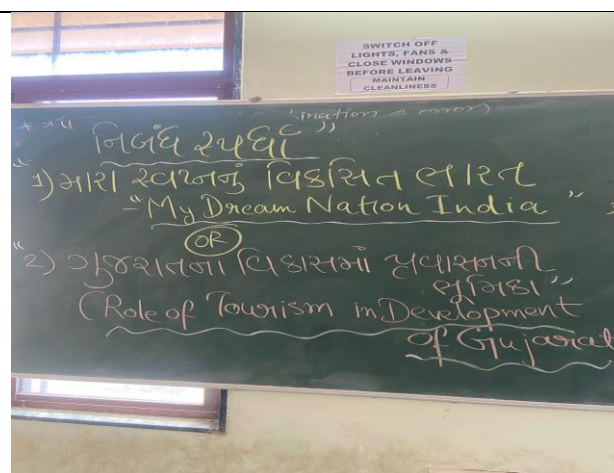 SWITCH OFF
LIGHTS, FANS &
CLOSE WINDOWS
BEFORE LEAVING
MAINTAIN
CLEANLINESS
નિબંધ સ્પર્ધા"
"1) મારા સ્વપ્નનું વિકસિત ભારત
- "My Dream Nation India"
OR
"2) ગુજરાતના વિકાસમાં પ્રવાસનની
ભુમિકા"
(Role of Tourism in Development
of Gujarat